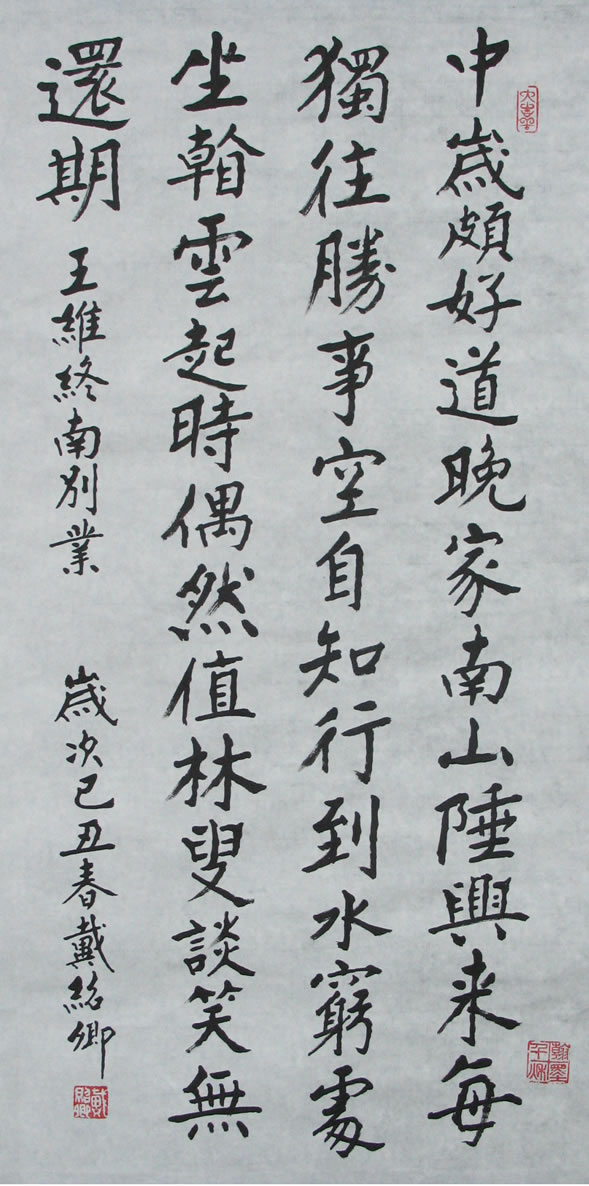 中歲頗好道晚家南山陲興来每
獨往勝事空自知行到水窮處
坐雲起時偶然值林叟談笑無
還期
王維終南別業
歲次己丑春戴紹卿
戴紹卿
翰墨千秋